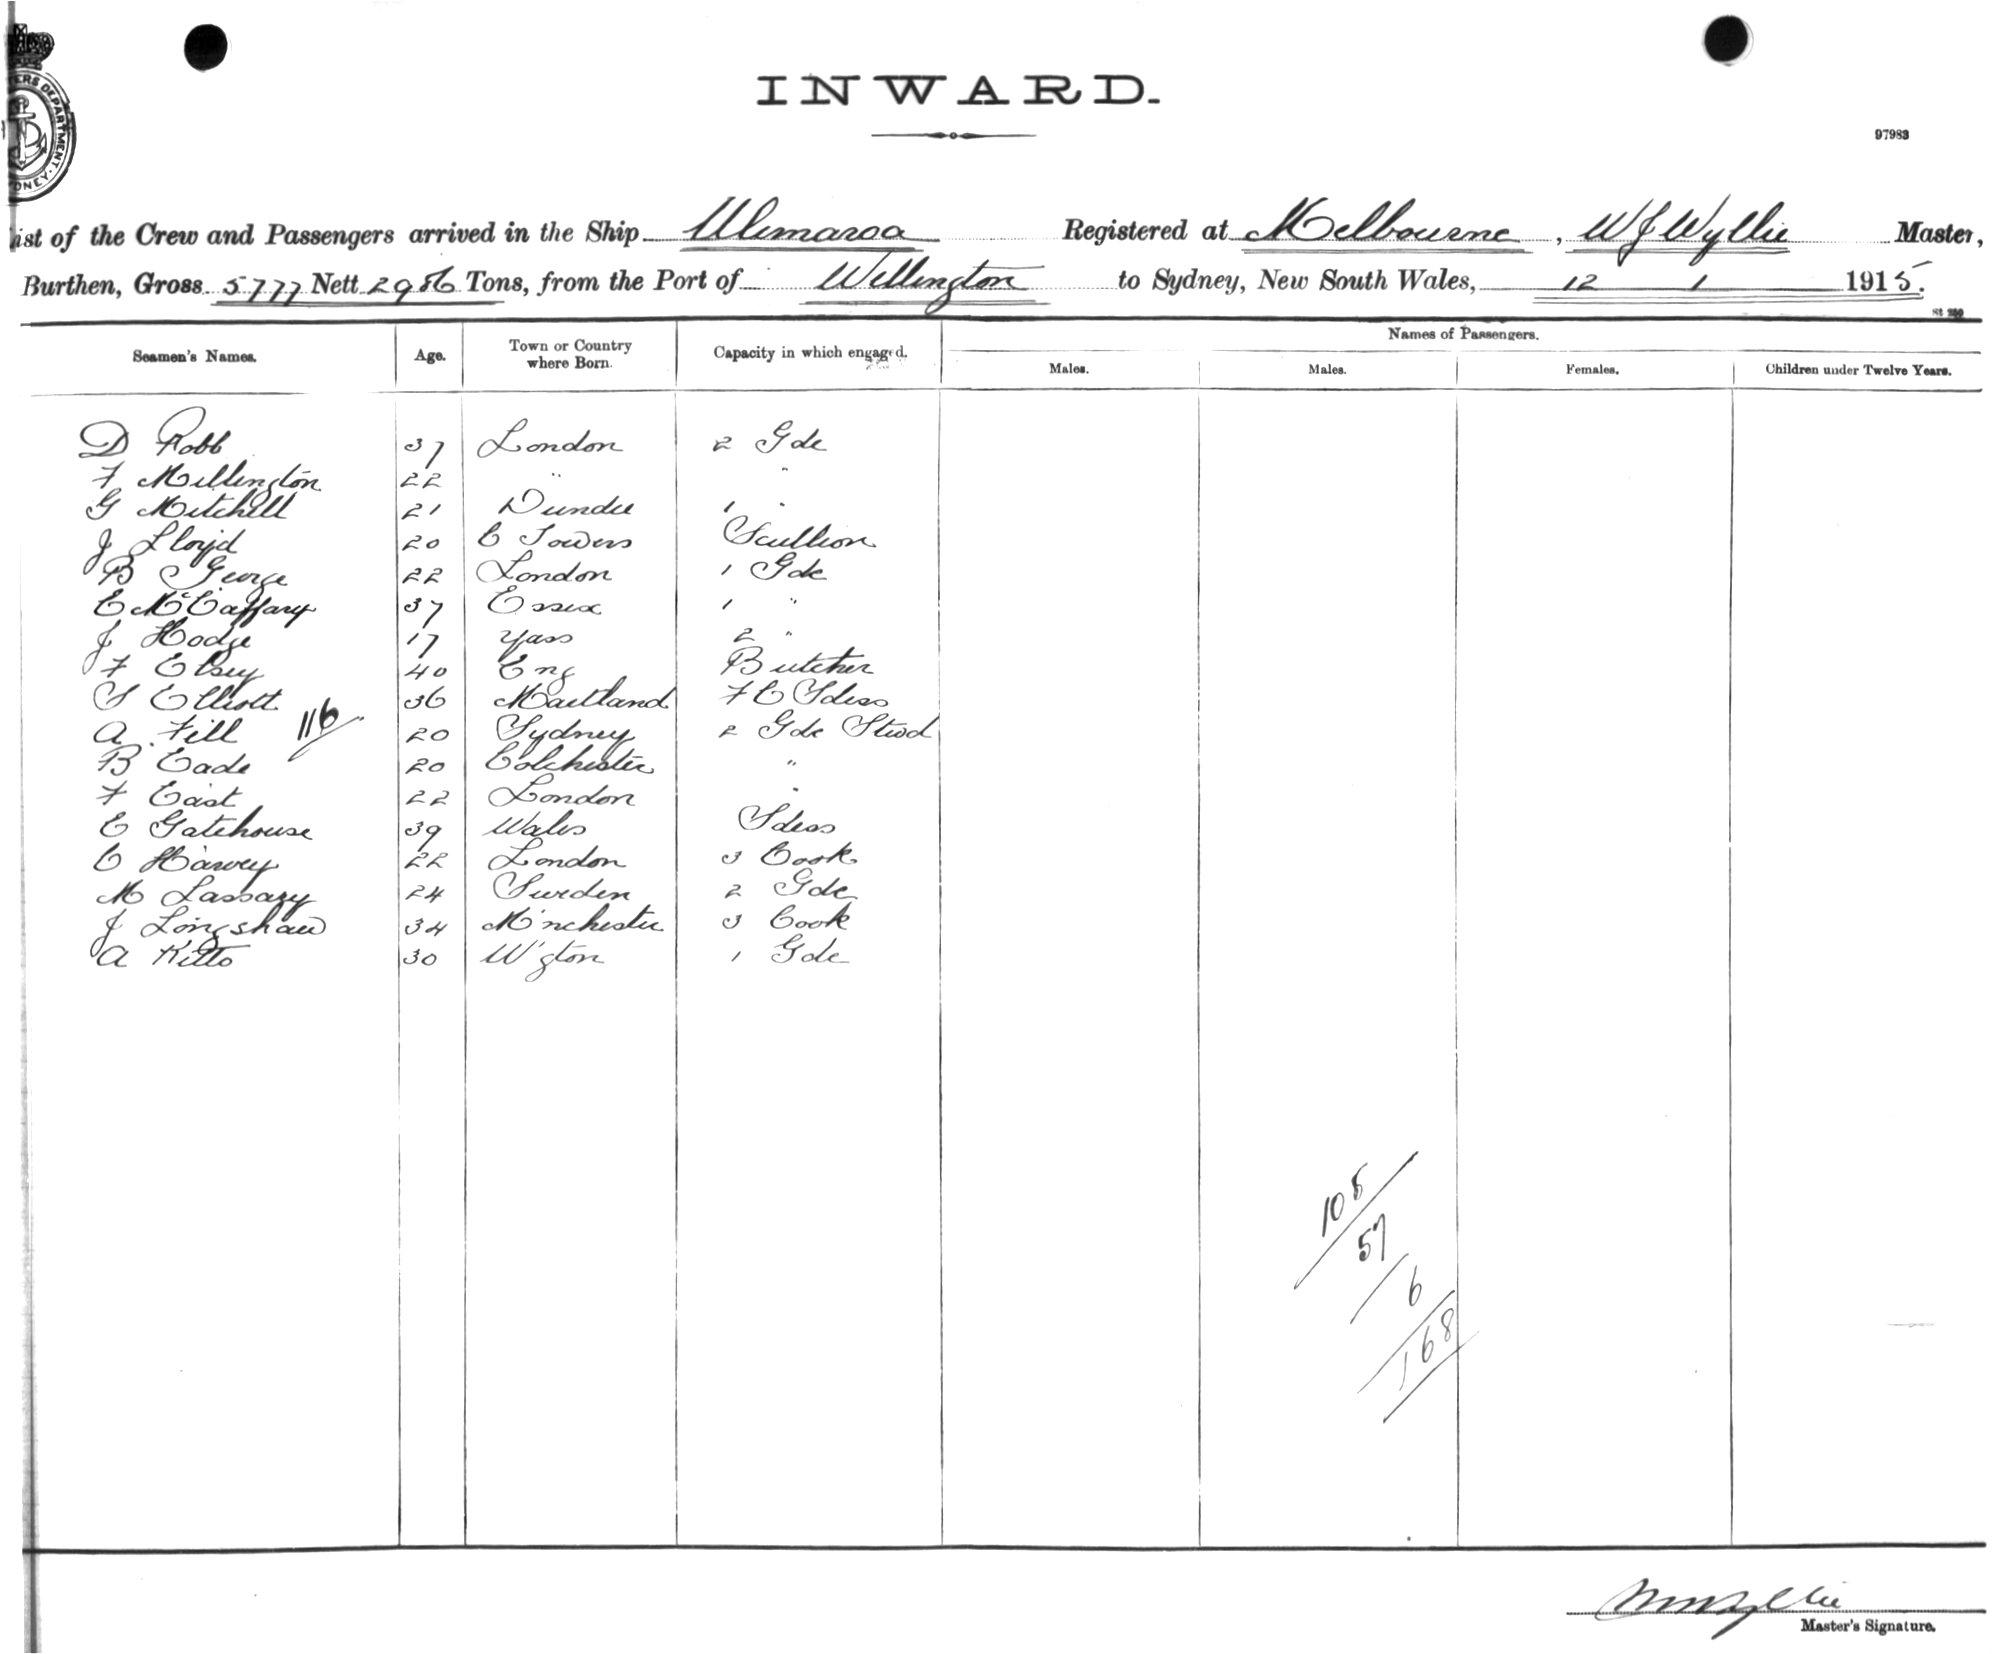 INWARD.
97983
ERS DEPARTMENT. DNEY.
ist of the Crew and Passengers arrived in the Ship Ulimaroa Registered at Melbourne, W J Wyllie Master,
Burthen, Gross 5777 Nett 2986 Tons, from the Port of Wellington to Sydney, New South Wales, 12 1 1915.
Seamen's Names. Age. Town or Country where Born. Capacity in which engaged. Names of Passengers.
Males. Males. Females. Children under Twelve Years.
D Robb 37 London 2 Gde
F Millington 22 " "
G Mitchell 21 Dundee 1 "
J Lloyd 20 C Towers Scullion
B George 22 London 1 Gde
E McCaffary 37 Essex 1 "
J Hodge 17 Yass 2 "
F Elsey 40 Eng Butcher
S Elliott 36 Maitland F C Sdess
A Fill 116 20 Sydney 2 Gde Stwd
B Eade 20 Colchester "
F East 22 London "
E Gatehouse 39 Wales Sdess
C Harvey 22 London 3 Cook
M Lassary 24 Sweden 2 Gde
J Longshaw 34 M'nchester 3 Cook
A Kitto 30 W'gton 1 Gde
105
57
6
168
Master's Signature.